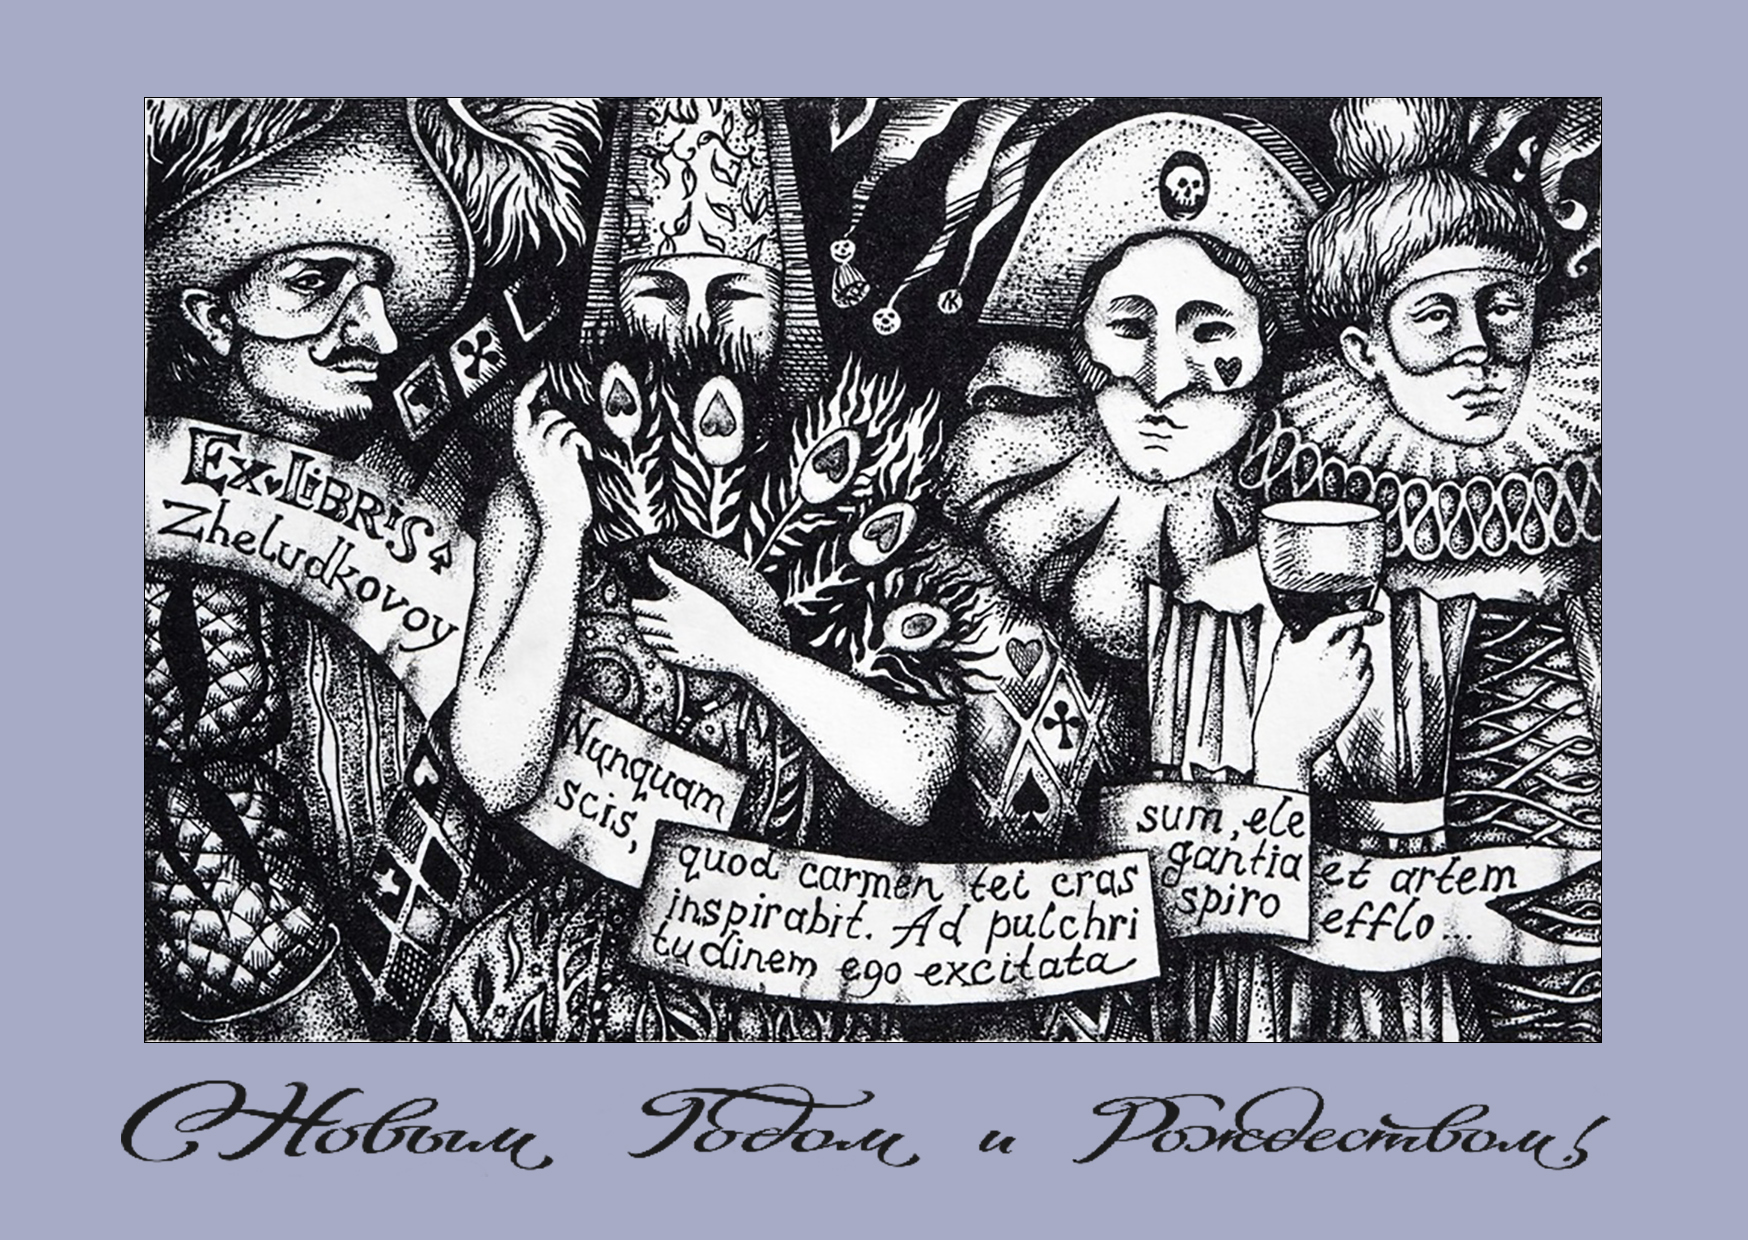 Ex·LiBRiS
Zheludkovoy
Nunquam
scis,
quod carmen tei cras
inspirabit. Ad pulchri
tudinem ego excitata
sum, ele
gantia
spiro
et artem
efflo...
С Новым Годом и Рождеством!